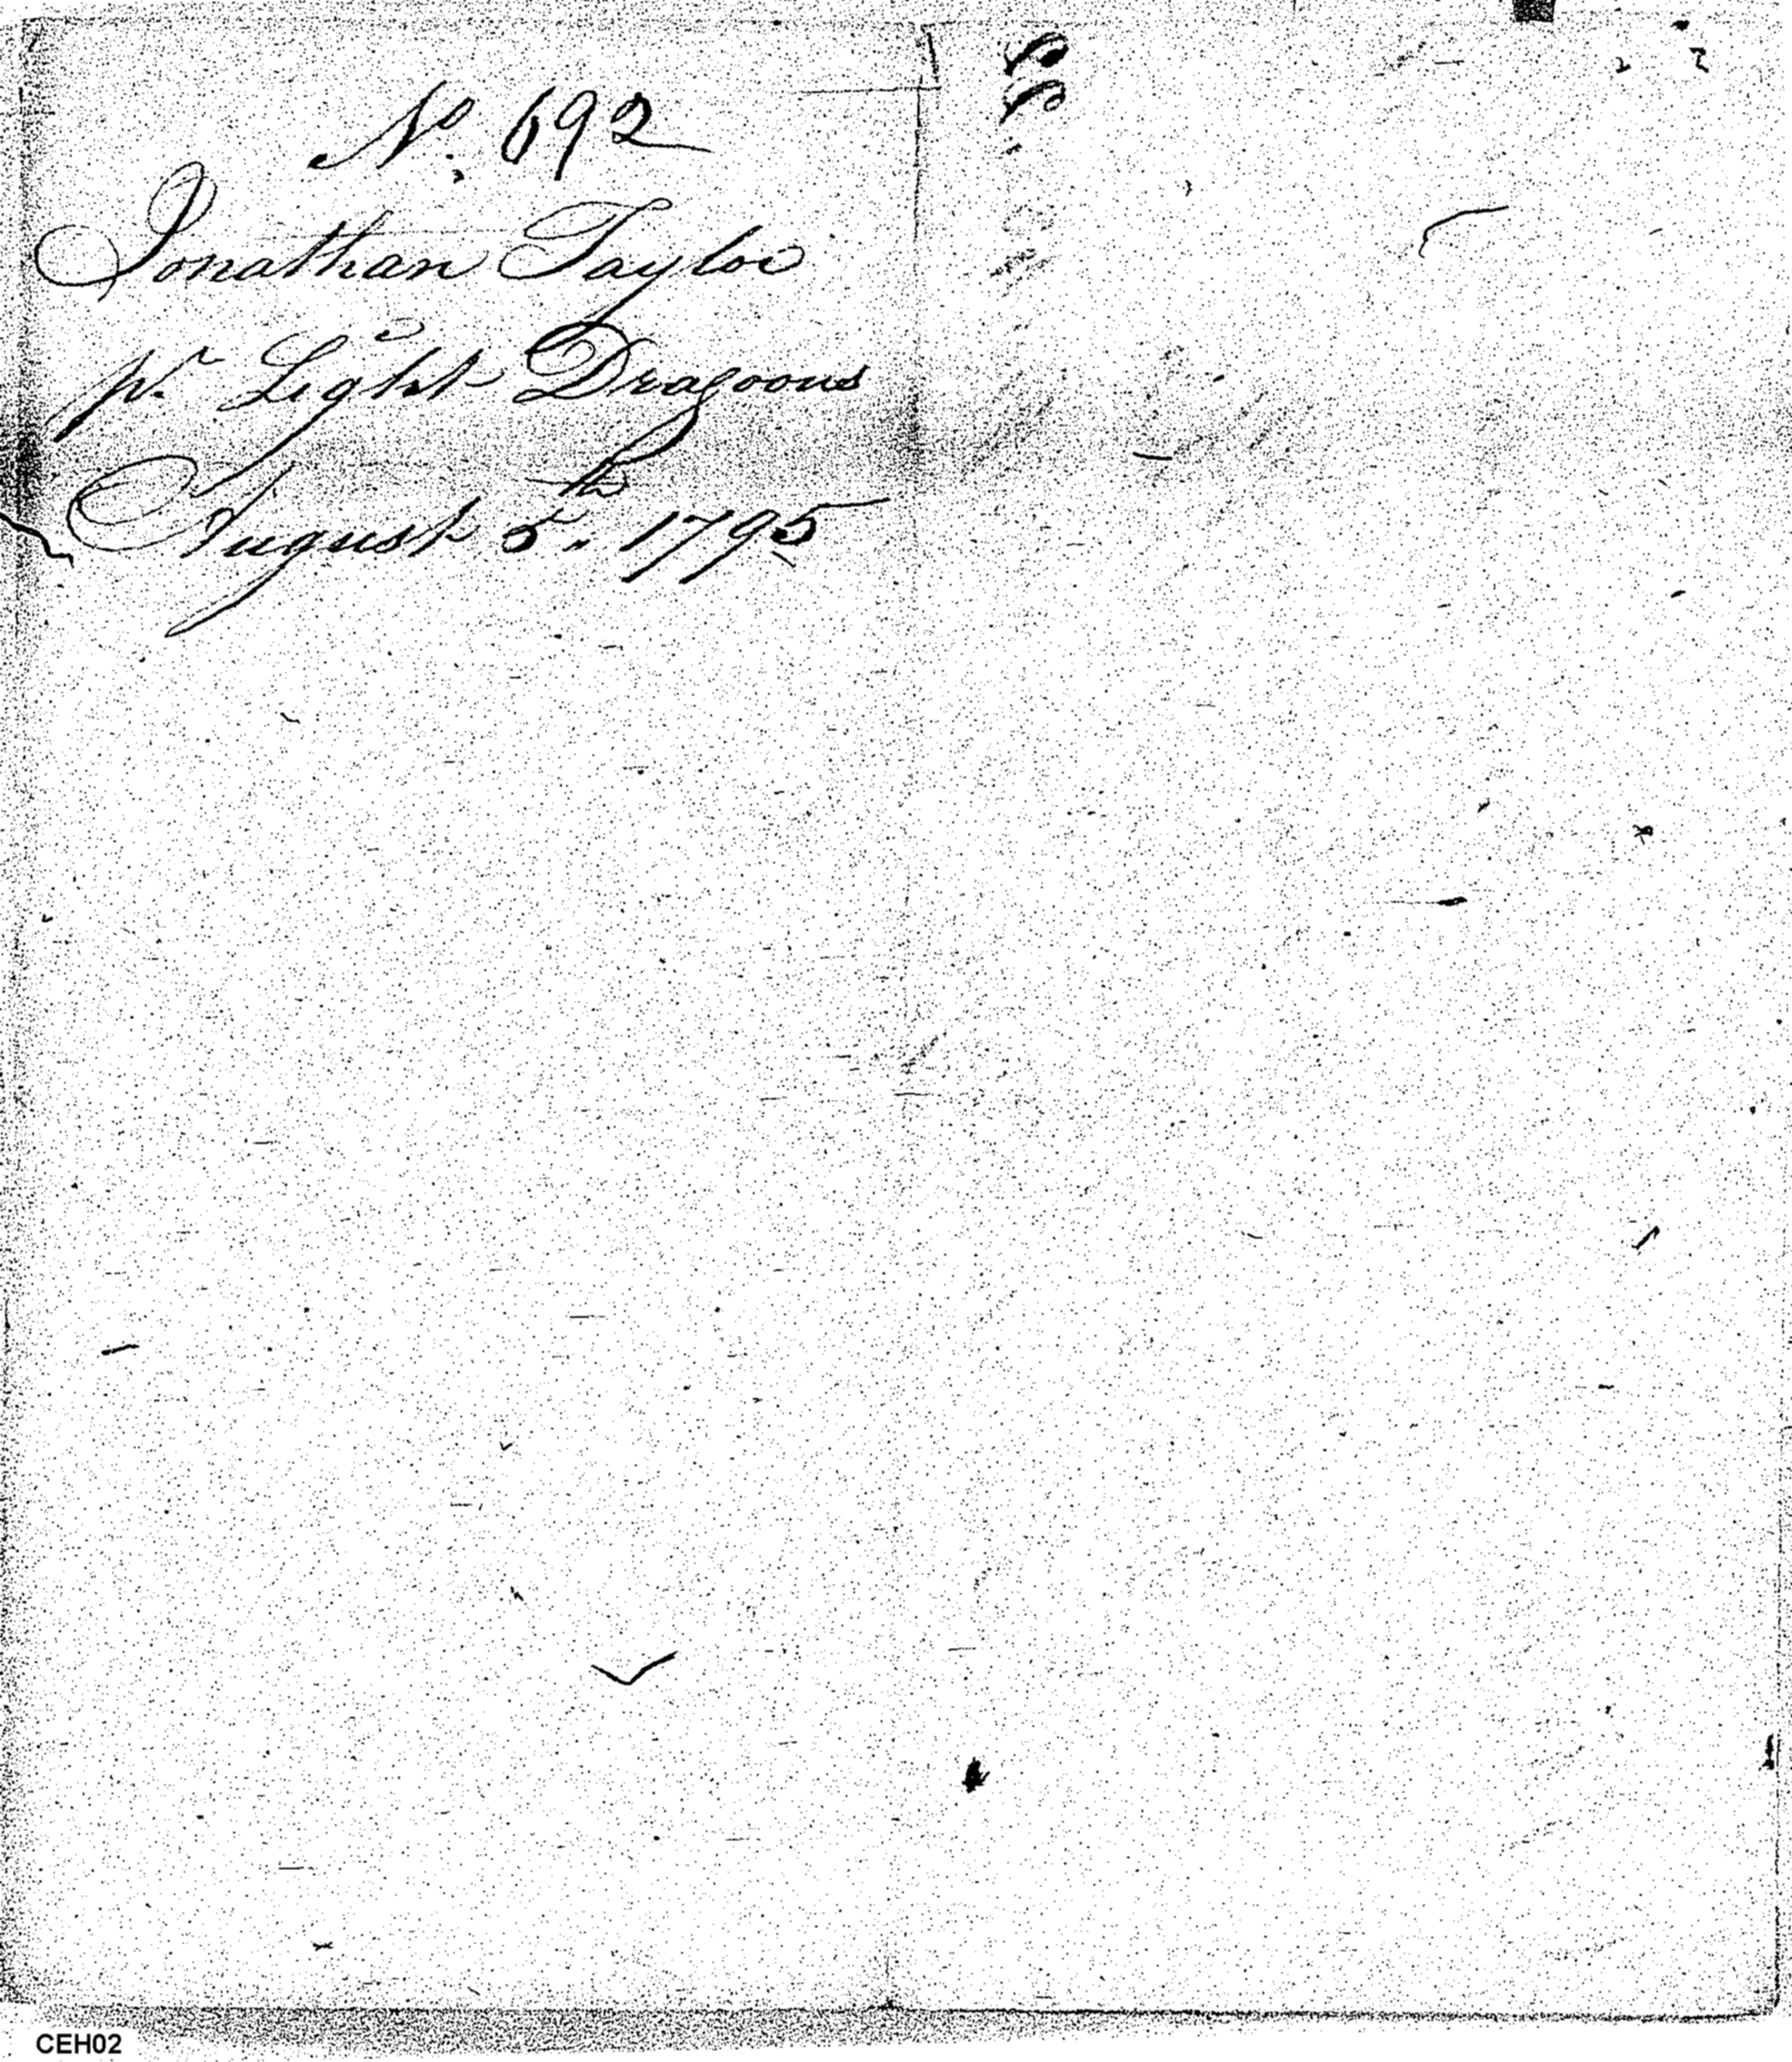 No. 692
Jonathan Taylor
pr. Light Dragoons
August 5th. 1795
CEH02